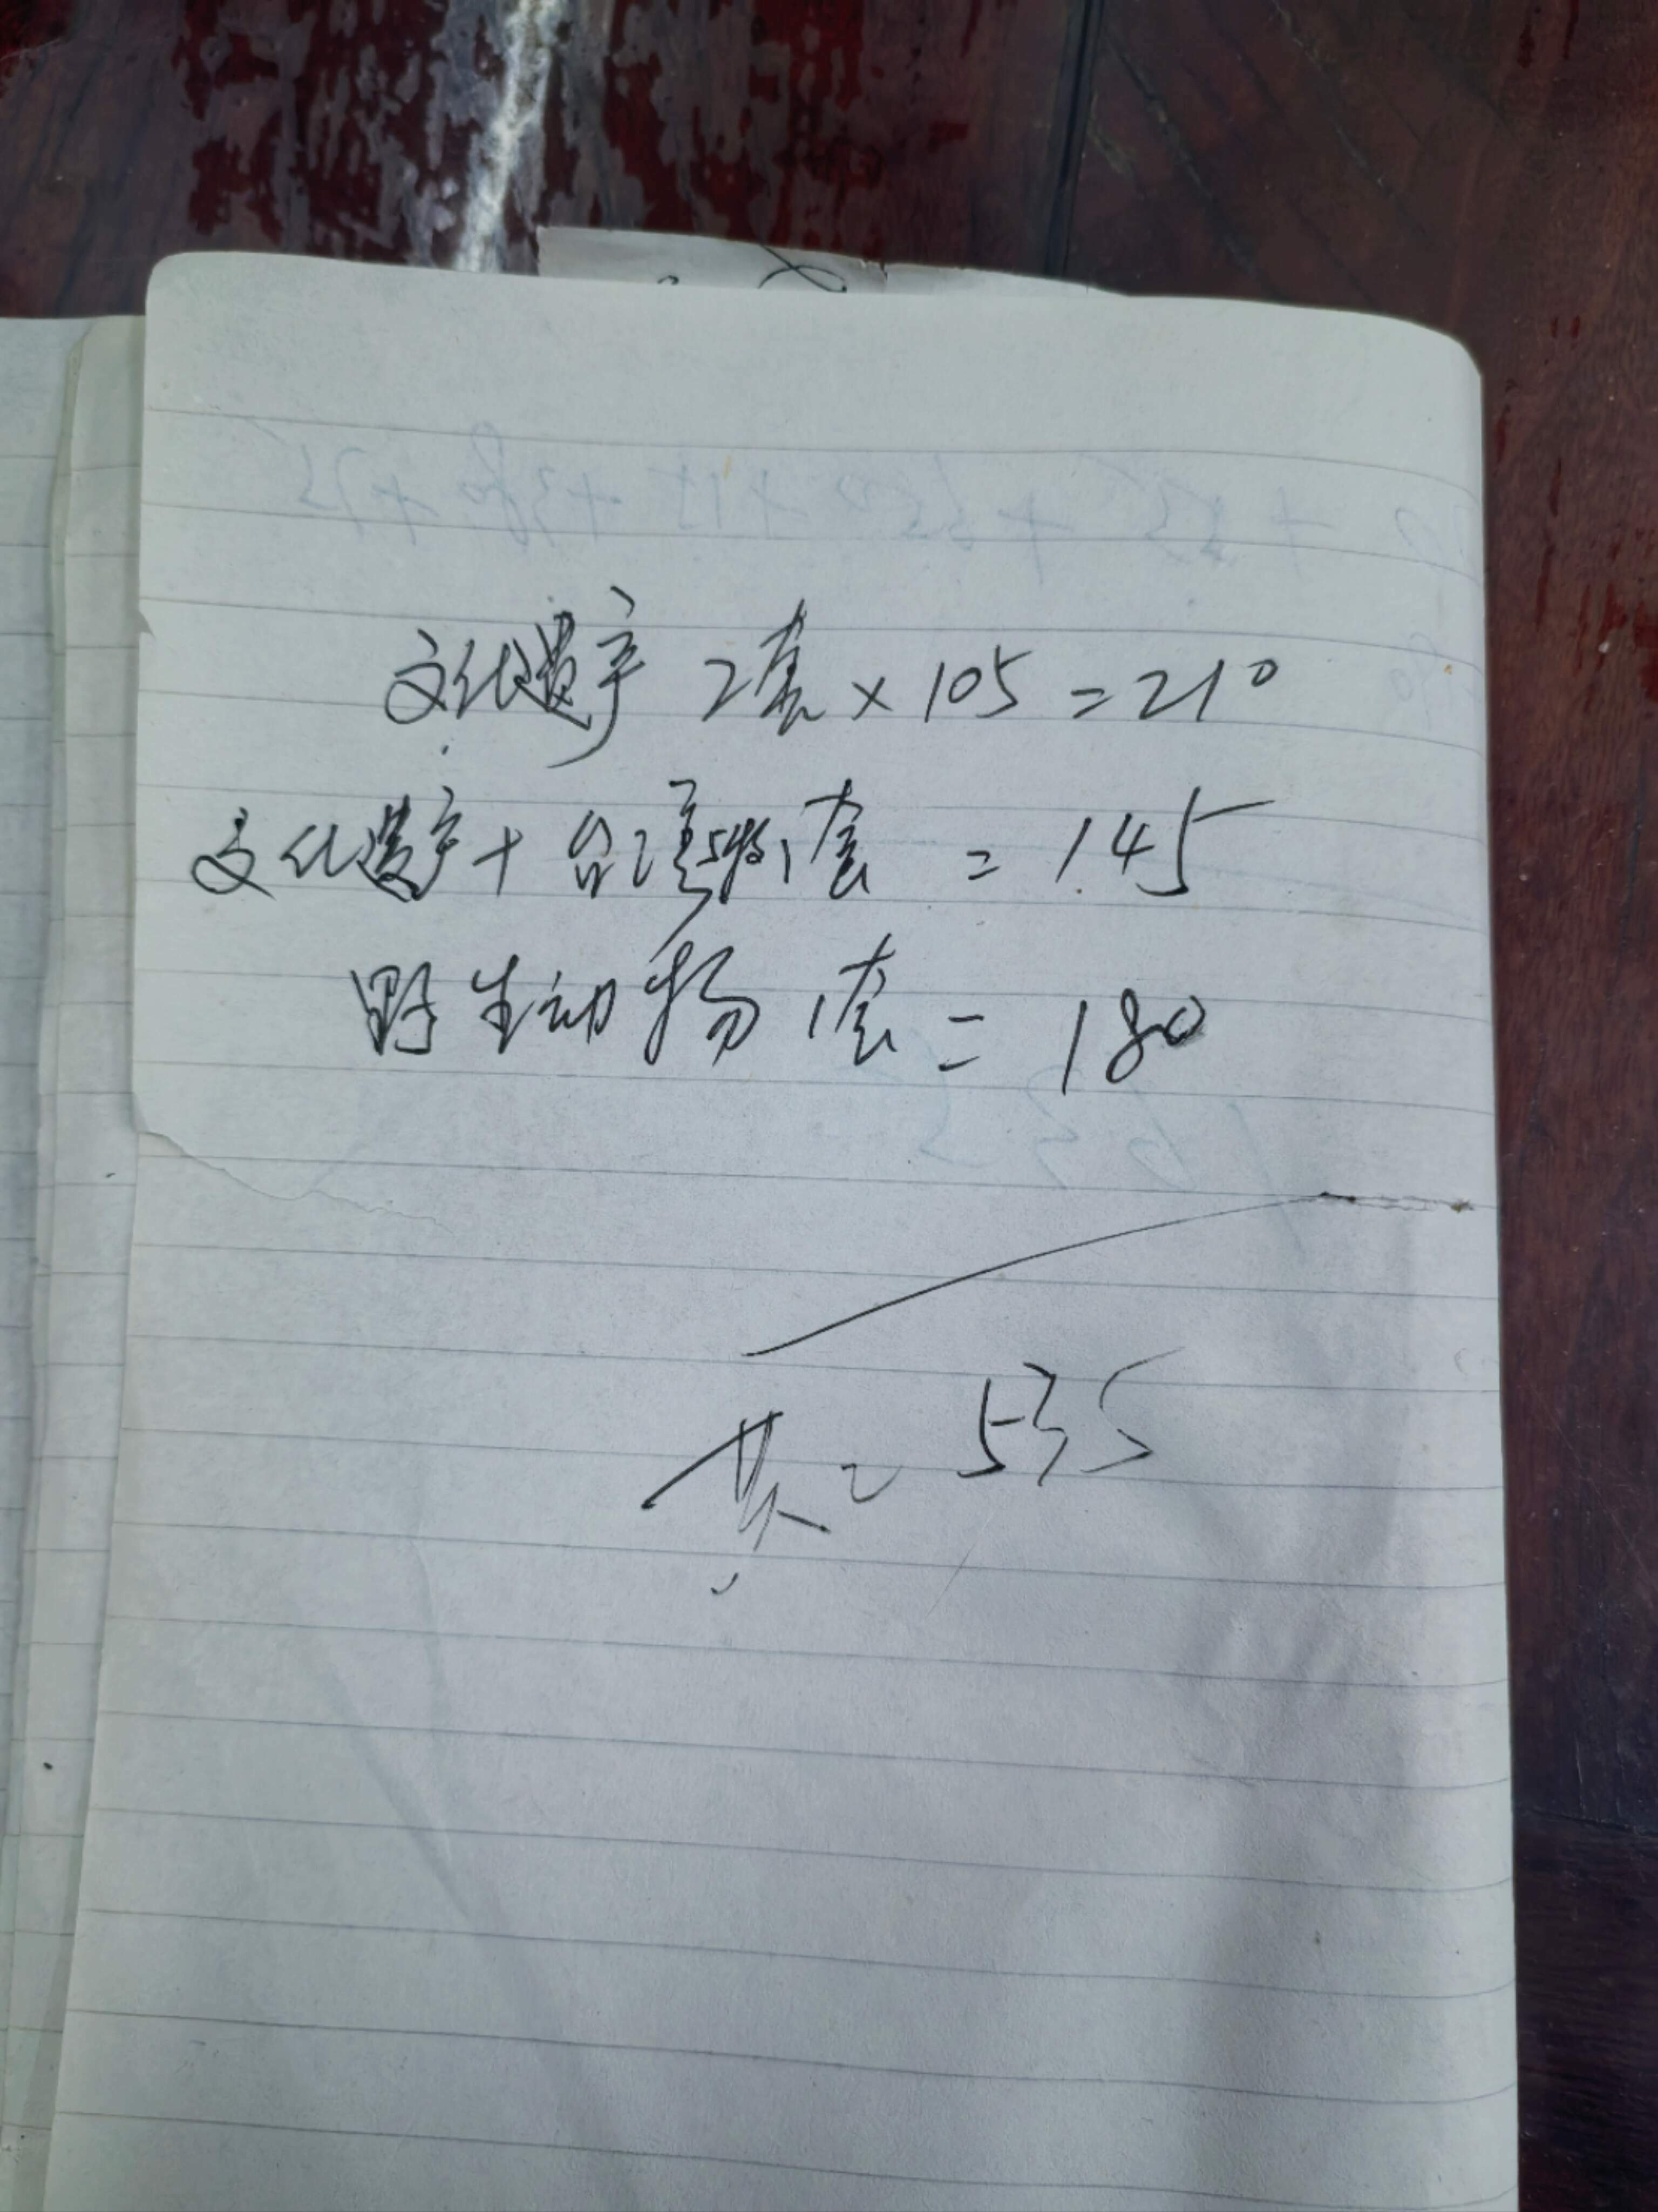 文化遗产 2套×105=210
文化遗产+台湾 1套 =145
野生动物 1套=180
共=535